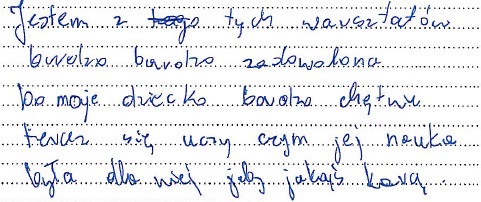 Jestem z tych warsztatów
bardzo bardzo zadowolona
bo moje dziecko bardzo chętnie
teraz się uczy czym jej nauka
była dla niej jakąś karą.